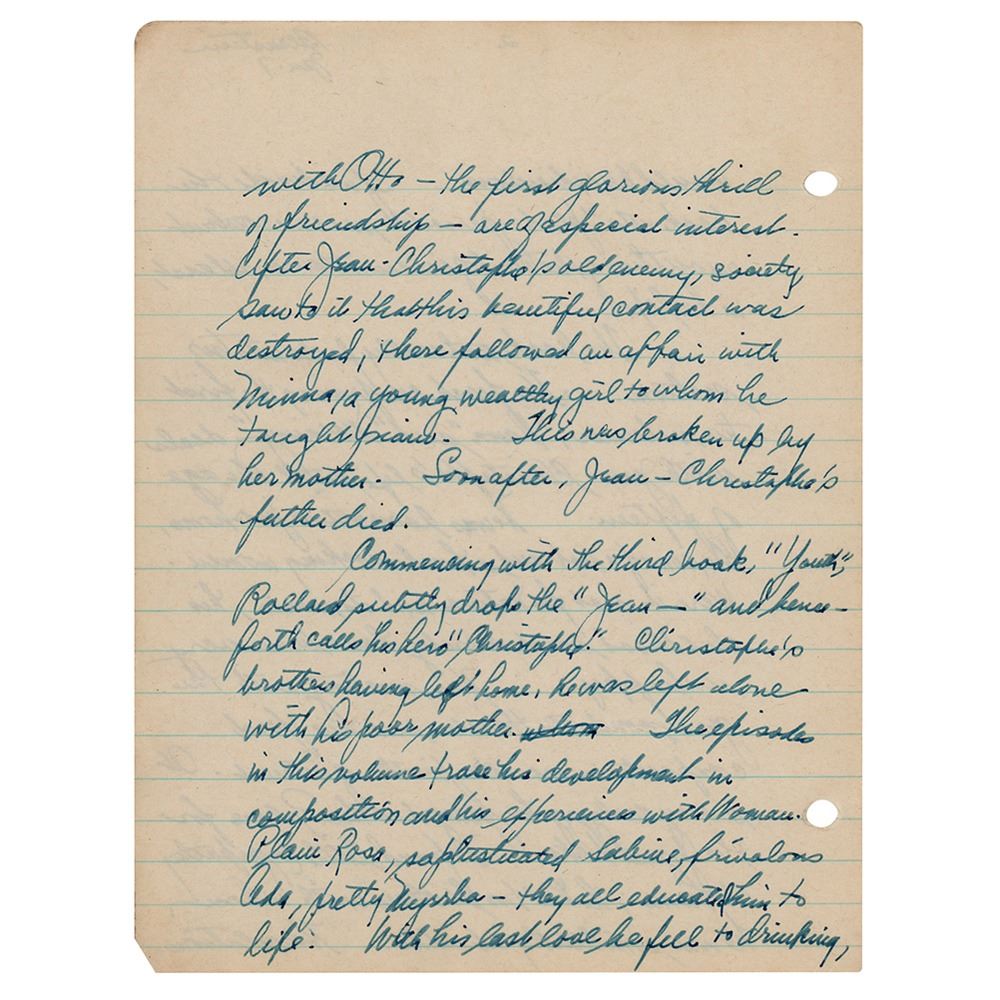 with Otto — the first glorious thrill
of friendship — are of especial interest.
After Jean-Christophe's old enemy, society
saw to it that this beautiful contact was
destroyed, there followed an affair with
Minna, a young wealthy girl to whom he
taught piano. This was broken up by
her mother. Soon after, Jean-Christophe's
father died.
Commencing with the third book, "Youth",
Rolland subtly drops the "Jean—" and hence-
forth calls his hero "Christophe." Christophe's
brothers having left home, he was left alone
with his poor mother. The episodes
in this volume trace his development in
composition and his experiences with Woman.
Plain Rosa, sophisticated Sabine, frivolous
Ada, pretty Myrrha — they all educated him to
life. With his last love he fell to drinking,